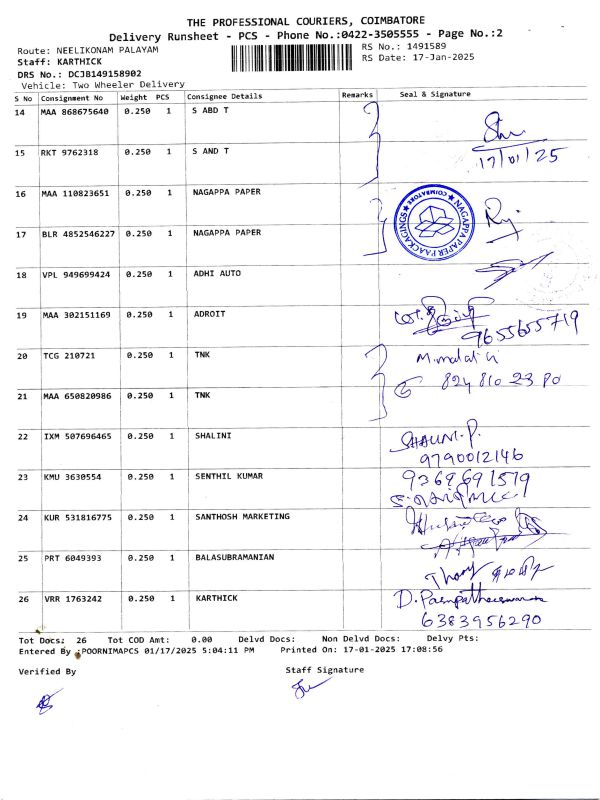 THE PROFESSIONAL COURIERS, COIMBATORE
Delivery Runsheet - PCS - Phone No.:0422-3505555 - Page No.:2
Route: NEELIKONAM PALAYAM
RS No.: 1491589
Staff: KARTHICK
RS Date: 17-Jan-2025
DRS No.: DCJB149158902
Vehicle: Two Wheeler Delivery
S No Consignment No Weight PCS Consignee Details Remarks Seal & Signature
14 MAA 868675640 0.250 1 S ABD T
15 RKT 9762318 0.250 1 S AND T
17/01/25
16 MAA 110823651 0.250 1 NAGAPPA PAPER
NAGAPPA PAPER PAACKAGINGS ★ COIMBATORE ★
17 BLR 4852546227 0.250 1 NAGAPPA PAPER
18 VPL 949699424 0.250 1 ADHI AUTO
19 MAA 302151169 0.250 1 ADROIT
9655655719
20 TCG 210721 0.250 1 TNK
M.malathi
824 810 23 80
21 MAA 650820986 0.250 1 TNK
22 IXM 507696465 0.250 1 SHALINI SHALINI.P.
9790012146
23 KMU 3630554 0.250 1 SENTHIL KUMAR 9369691579
24 KUR 531816775 0.250 1 SANTHOSH MARKETING
25 PRT 6049393 0.250 1 BALASUBRAMANIAN
26 VRR 1763242 0.250 1 KARTHICK
6383956290
Tot Docs: 26 Tot COD Amt: 0.00 Delvd Docs: Non Delvd Docs: Delvy Pts:
Entered By :POORNIMAPCS 01/17/2025 5:04:11 PM Printed On: 17-01-2025 17:08:56
Verified By Staff Signature